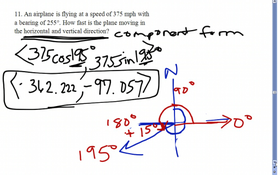 11. An airplane is flying at a speed of 375 mph with
a bearing of 255°. How fast is the plane moving in
the horizontal and vertical direction?
component form
<375cos195°, 375sin195°>
<-362.222, -97.057>
N
90°
180°
+ 15°
0°
195°